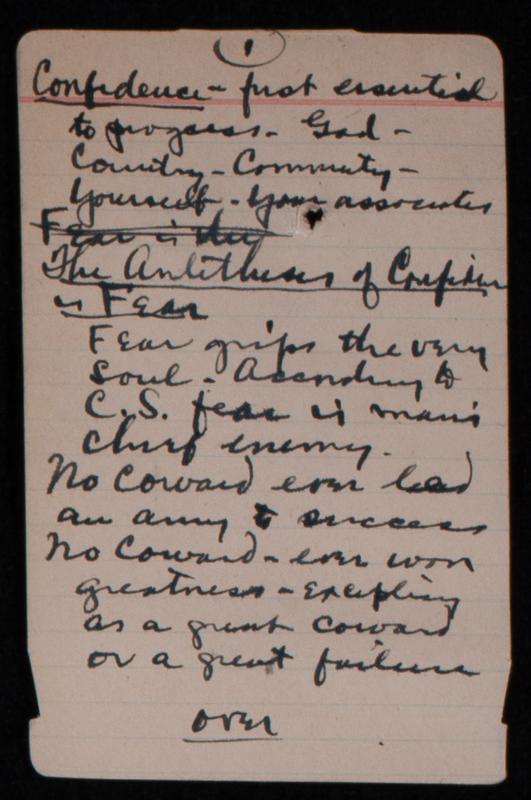 1
Confidence - first essential
to progress - God -
Country - Community -
Yourself - Your associates
Fear is the
The Antitheses of Confiden
is Fear
Fear grips the very
soul - According to
C.S. fear is man's
chief enemy.
No Coward ever lead
an army to success
No Coward - ever won
greatness - excepting
as a great coward
or a great failure
over